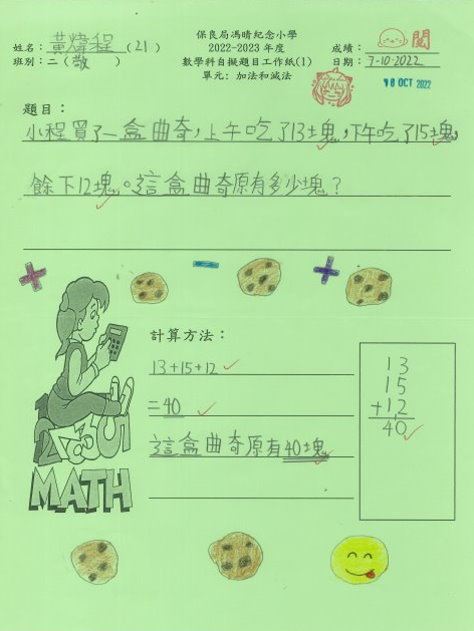 保良局馮晴紀念小學
姓名：黃煒程(21)
2022-2023 年度
成績：閱
班別：二(敬)
數學科自擬題目工作紙(1)
日期：7-10-2022
單元：加法和減法
18 OCT 2022
題目：
小程買了一盒曲奇，上午吃了13塊，下午吃了15塊，
餘下12塊。這盒曲奇原有多少塊？
計算方法：
13+15+12
=40
這盒曲奇原有40塊
13
15
+12
40
MATH